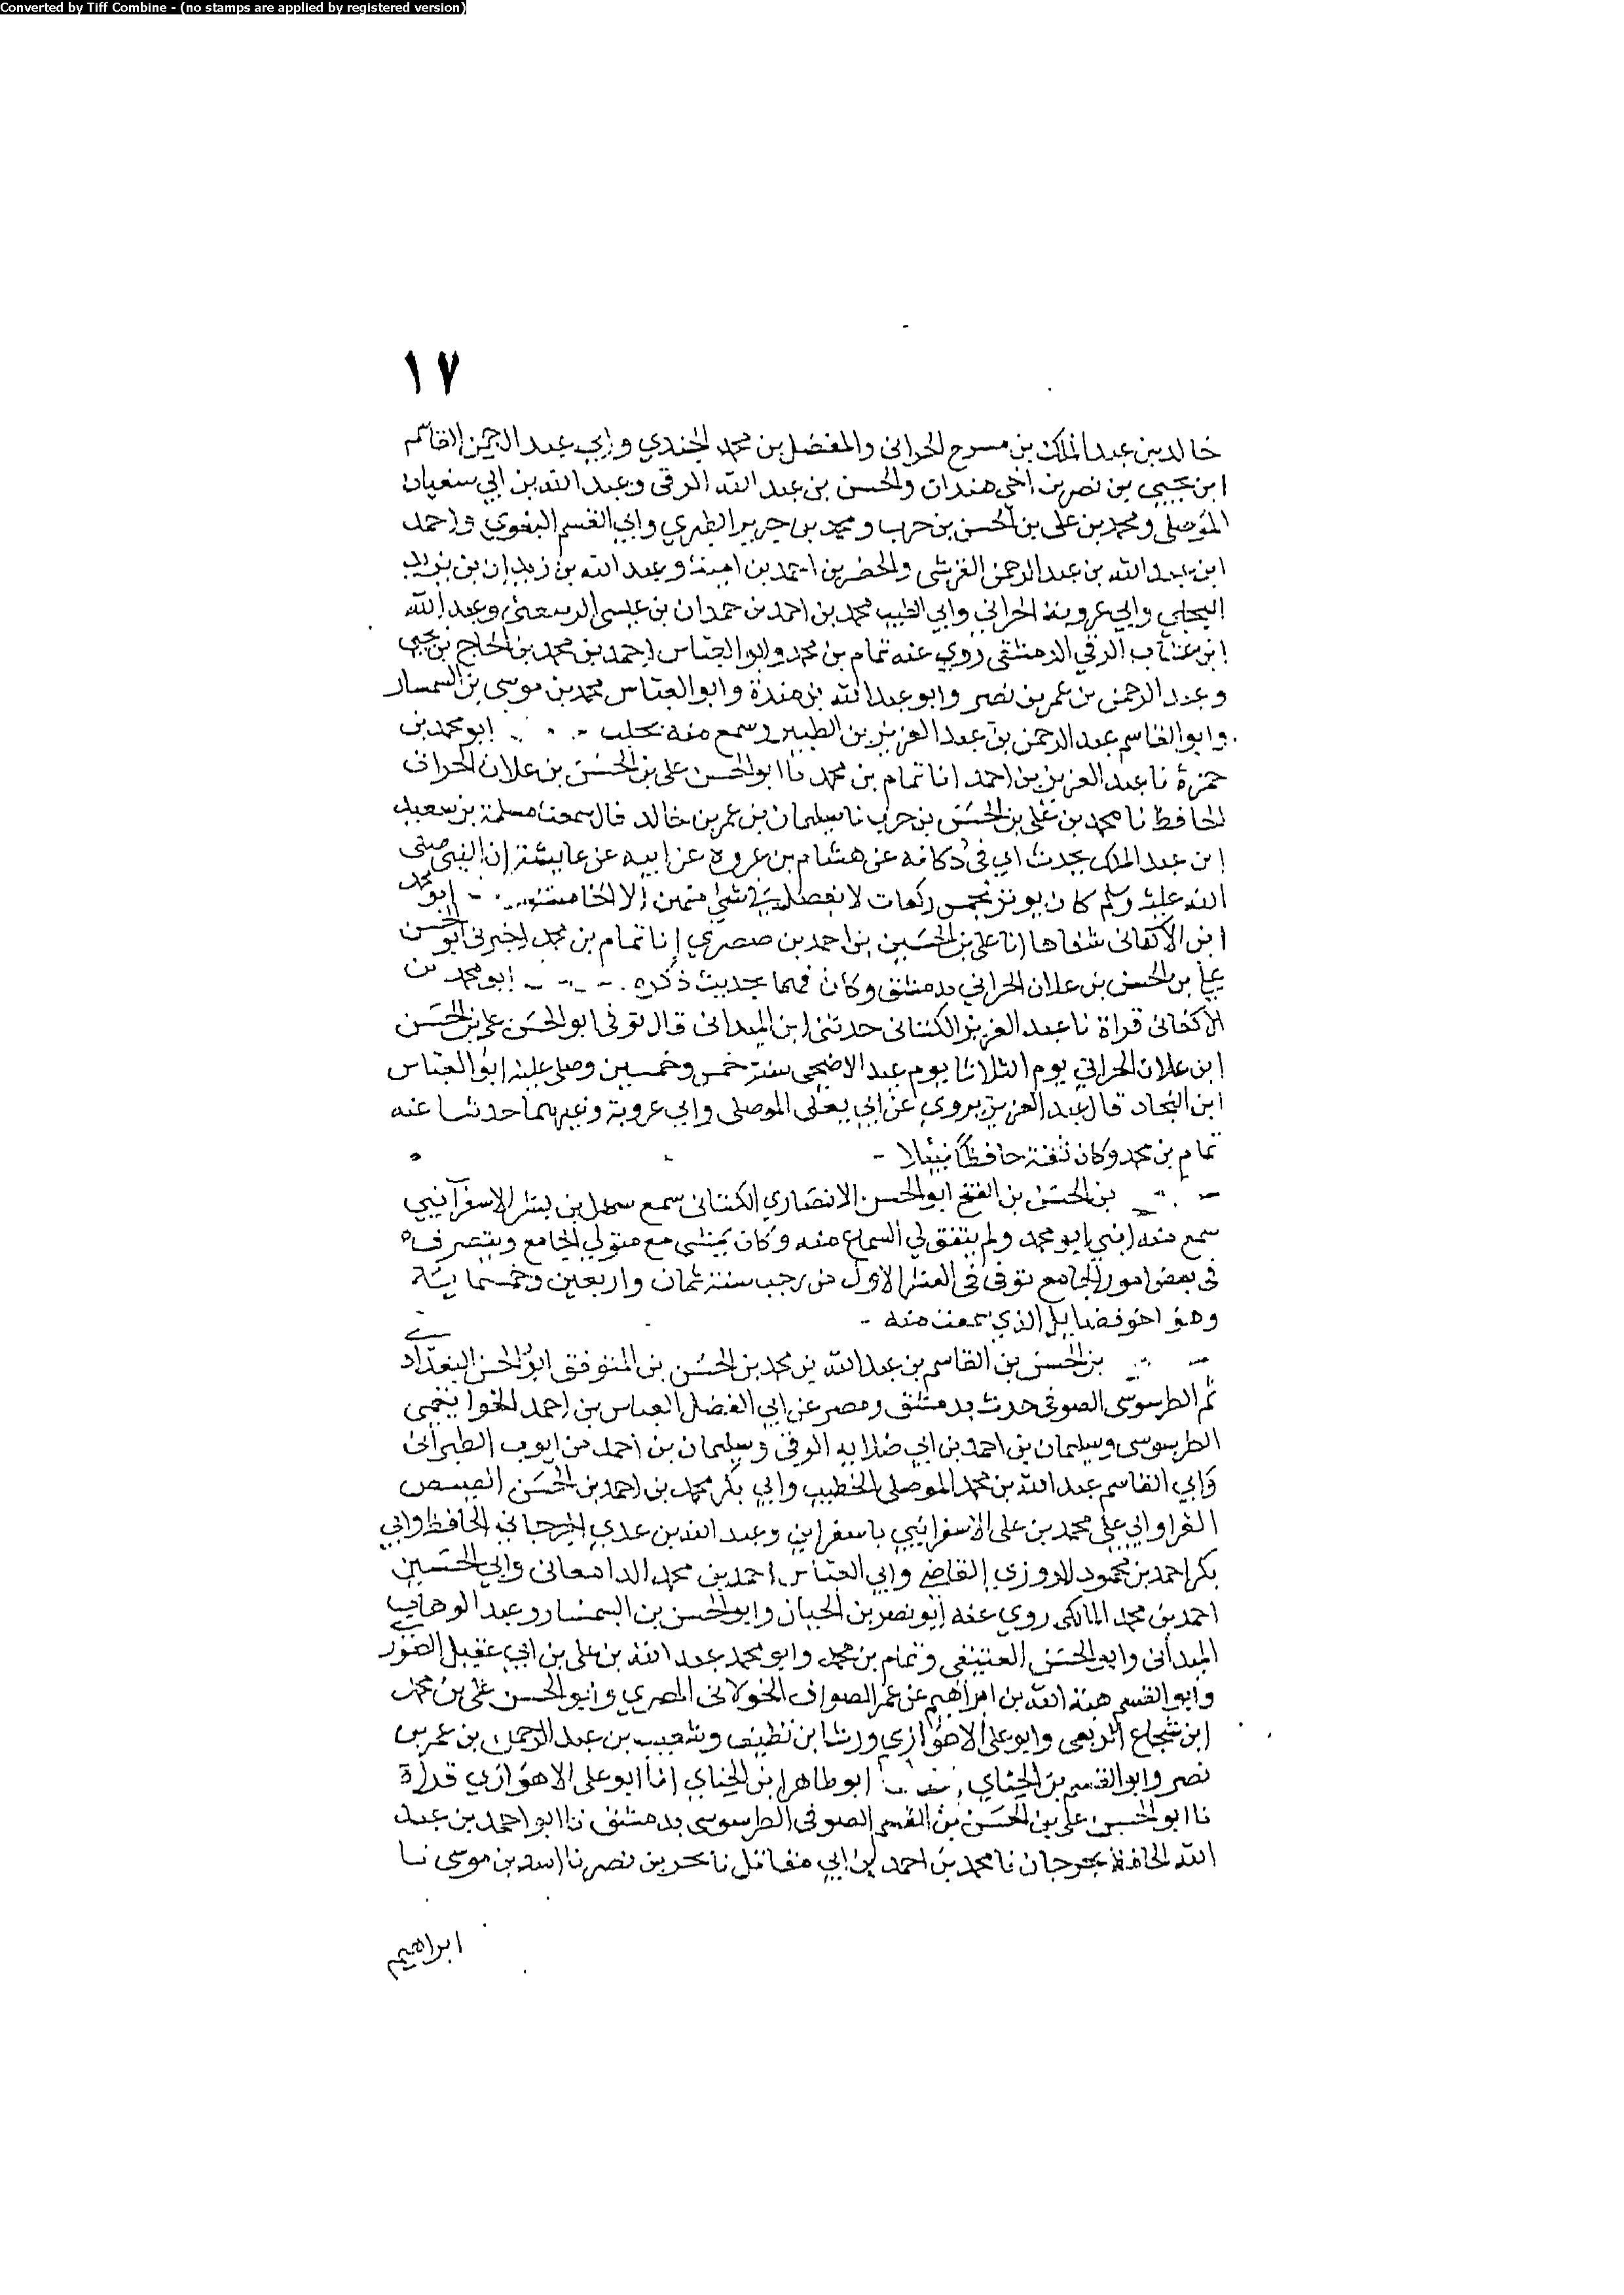 Converted by Tiff Combine - (no stamps are applied by registered version)
١٧
خالد بن عبد الملك بن مسرح الحراني والمفضل بن محمد الجندي وابي عبد الرحمن القاسم
ابن يحيى بن نصر بن اخي هندان والحسن بن عبد الله الرقي وعبد الله بن ابي سفيان
الموصلي ومحمد بن علي بن الحسن بن حرب ومحمد بن جرير الطبري وابي القسم البغوي واحمد
ابن عبد الله بن عبد الرحمن القرشي والخضر بن احمد بن امية وعبد الله بن زيدان بن بريد
البجلي وابي عروبة الحراني وابي الطيب محمد بن احمد بن حمدان بن عيسى الرسعني وعبد الله
ابن عتاب الزفتي الدمشقي روي عنه تمام بن محمد وابو العباس احمد بن محمد بن الحاج بن يحيى
وعبد الرحمن بن عمر بن نصر وابو عبد الله بن مندة وابو العباس محمد بن موسى بن السمسار
وابو القاسم عبد الرحمن بن عبد العزيز بن الطبيز وسمع منه بحلب ابو محمد بن
حمزة نا عبد العزيز بن احمد انا تمام بن محمد نا ابو الحسن علي بن الحسن بن علان الحراني
الحافظ نا محمد بن علي بن الحسن بن حرب نا سليمان بن عمر بن خالد قال سمعت مسلمة بن سعيد
ابن عبد الملك يحدث ابي في دكانه عن هشام بن عروة عن ابيه عن عايشة ان النبي صلى
الله عليه وسلم كان يوتر بخمس ركعات لا يفصل في شي منهن الا الخامسة ابو محمد
ابن الاكفاني شفاها انا علي بن الحسين بن احمد بن صصري انا تمام بن محمد اخبرني ابو الحسن
علي بن الحسن بن علان الحراني بدمشق وكان فهما بحديث ذكره ابو محمد بن
الاكفاني قراة نا عبد العزيز الكتاني حدثني ابن الميداني قال توفي ابو الحسن علي بن الحسن
ابن علان الحراني يوم الثلاثا يوم عيد الاضحى سنة خمس وخمسين وصلى عليه ابو العباس
ابن النجاد قال عبد العزيز يروي عن ابي يعلى الموصلي وابي عروبة وغيرهما حدثنا عنه
تمام بن محمد وكان ثقة حافظا نبيلا
بن الحسن بن الفتح ابو الحسن الانصاري الكتاني سمع سهل بن بشر الاسفرآئيني
سمع منه ابني ابو محمد ولم يتفق لي السماع منه وكان يمشي مع متولي الجامع ويتصرف
في بعض امور الجامع توفي في العشر الاول من رجب سنة ثمان واربعين وخمسماية
وهو اخو فضايل الذي سمعت منه
بن الحسن بن القاسم بن عبد الله بن محمد بن الحسن بن المتوفق ابو الحسن البغدادي
ثم الطرسوسي الصوفي حدث بدمشق ومصر عن ابي الفضل العباس بن احمد الخواتيمي
الطرسوسي وسليمان بن احمد بن ابي صلابه الرقي وسليمان بن احمد بن ايوب الطبراني
وابي القاسم عبد الله بن محمد الموصلي الخطيب وابي بكر محمد بن احمد بن الحسن
وابي علي محمد بن علي الاسفرائيني باسفراين وعبد الله بن عدي الجرجاني الحافظ وابي
بكر احمد بن محمود القاضي وابي العباس احمد بن محمد الدامغاني وابي الحسين
احمد بن محمد المالكي روي عنه ابو نصر بن الجبان وابو الحسن بن السمسار وعبد الوهاب
الميداني وابو الحسن العتيقي وتمام بن محمد وابو محمد عبد الله بن علي بن ابي عقيل الصوري
وابو القسم هبة الله بن ابراهيم بن عمر الصواف الخولاني المصري وابو الحسن علي بن محمد
ابن شجاع الربعي وابو علي الاهوازي ورشا بن نظيف وشعيب بن عبد الرحمن بن عمر بن
نصر وابو القسم بن الحنائي ابو طاهر بن الحنائي انا ابو علي الاهوازي قراة
نا ابو الحسن علي بن الحسن بن القسم الصوفي الطرسوسي بدمشق نا ابو احمد بن عبد
الله الحافظ بجرجان نا محمد بن احمد بن ابي مقاتل نا بحر بن نصر نا اسد بن موسى نا
ابراهيم